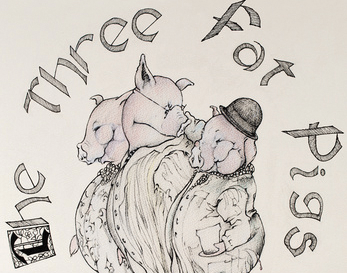 The Three For Pigs